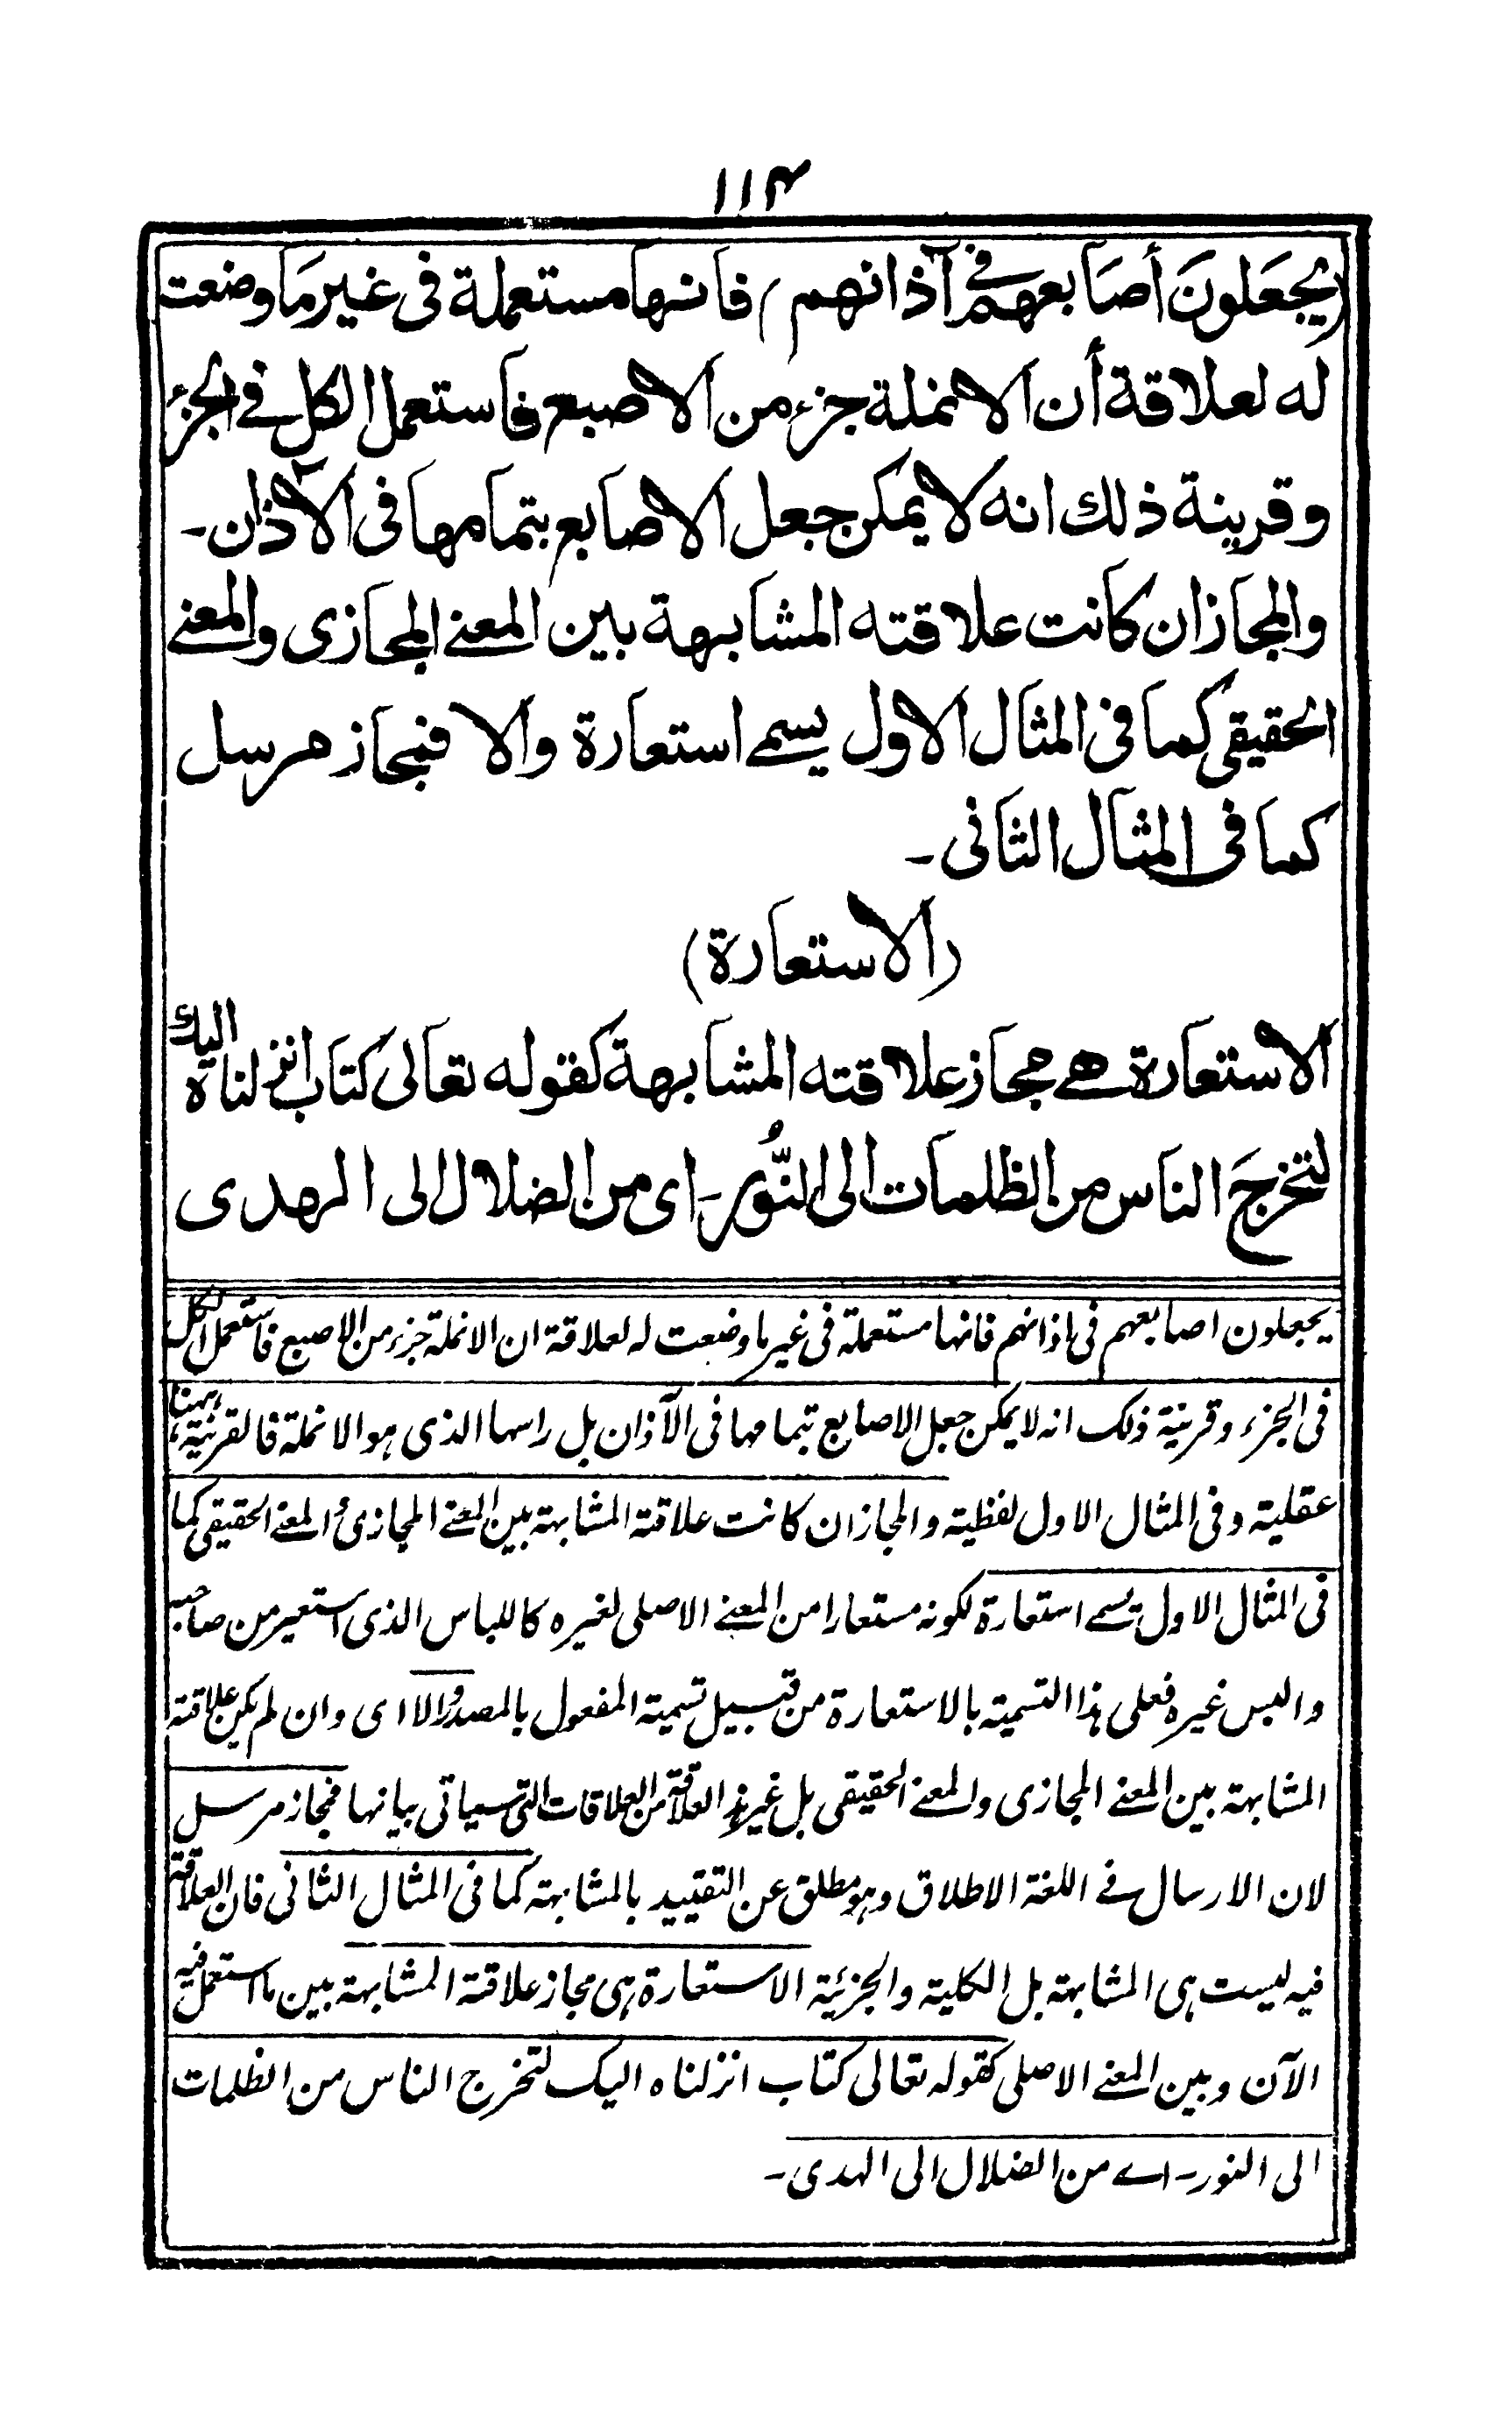 ١١٤
(يجعَلونَ أصَابعهم في آذانهم) فانها مستعملة فى غير مَا وضعت
له لعلاقة أن الانملة جزء من الاصبع فاستعمل الكل فے الجزء
وقرينة ذلك انه لا يمكن جعل الاصابع بتمامها فى الآذان۔
والمجاز ان كانت علاقته المشابهة بين المعنے المجازى والمعنے
الحقيقى كما فى المثال الاول يسمے استعارة والا فمجاز مرسل
كما فى المثال الثانى۔
(الاستعارة)
الاستعارة هے مجاز علاقته المشابهة كقوله تعالى كتاب انزلناه اليك
لتخرجَ الناس من الظلمات الى النُّور۔ اى من الضلال الى الهدى
يجعلون اصابعهم فى اذانهم فانها مستعملة فى غير ما وضعت له لعلاقة ان الانملة جزء من الاصبع فاستعمل الكل
فى الجزء وقرينة ذلك انه لا يمكن جعل الاصابع بتمامها فى الآذان بل راسها الذى هو الانملة فالقرينة ههنا
عقلية وفى المثال الاول لفظية والمجاز ان كانت علاقته المشابهة بين المعنے المجازى والمعنے الحقيقى كما
فى المثال الاول يسمے استعارة لكونه مستعارا من المعنے الاصلى لغيره كاللباس الذى استعير من صاحبه
والبس غيره فعلى هذا التسمية بالاستعارة من قبيل تسمية المفعول بالمصدر والا اى وان لم يكن علاقته
المشابهة بين المعنے المجازى والمعنے الحقيقى بل غير هذه العلاقة من العلاقات التى سياتى بيانها فمجاز مرسل
لان الارسال فے اللغة الاطلاق وهو مطلق عن التقييد بالمشابهة كما فى المثال الثانى فان العلاقة
فيه ليست هى المشابهة بل الكلية والجزئية الاستعارة هى مجاز علاقته المشابهة بين ما استعمل فيه
الآن وبين المعنے الاصلى كقوله تعالى كتاب انزلناه اليك لتخرج الناس من الظلمات
الى النور۔ اے من الضلال الى الهدى۔